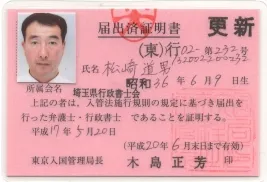 届出済証明書
更新
(東)行02-第232号
氏名 松崎道男
昭和36年6月9日生
所属会名 埼玉県行政書士会
上記の者は、入管法施行規則の規定に基づき届出を
行った弁護士・行政書士であることを証明する。
平成17年5月20日
(平成20年6月末日まで有効)
東京入国管理局長 木島正芳 印